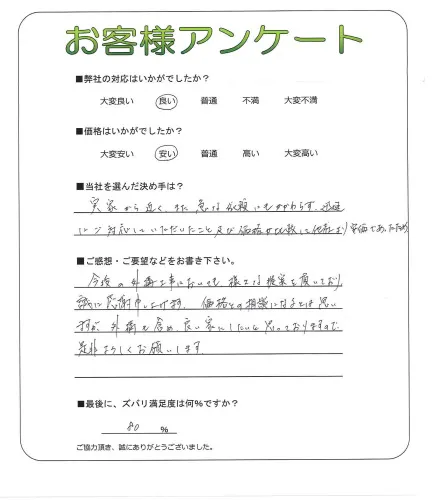 お客様アンケート
■弊社の対応はいかがでしたか？
大変良い　良い　普通　不満　大変不満
■価格はいかがでしたか？
大変安い　安い　普通　高い　大変高い
■当社を選んだ決め手は？
実家から近く、また急な依頼にもかかわらず、迅速
にご対応していただいたこと及び価格が比較して他社より安価であったため
■ご感想・ご要望などをお書き下さい。
今後の外構工事においても様々な提案を頂いており
誠に感謝申し上げます。価格との相談になるとは思い
ますが、外構も含め、良い家にしたいと思っておりますので
是非よろしくお願いします。
■最後に、ズバリ満足度は何％ですか？
80 ％
ご協力頂き、誠にありがとうございました。